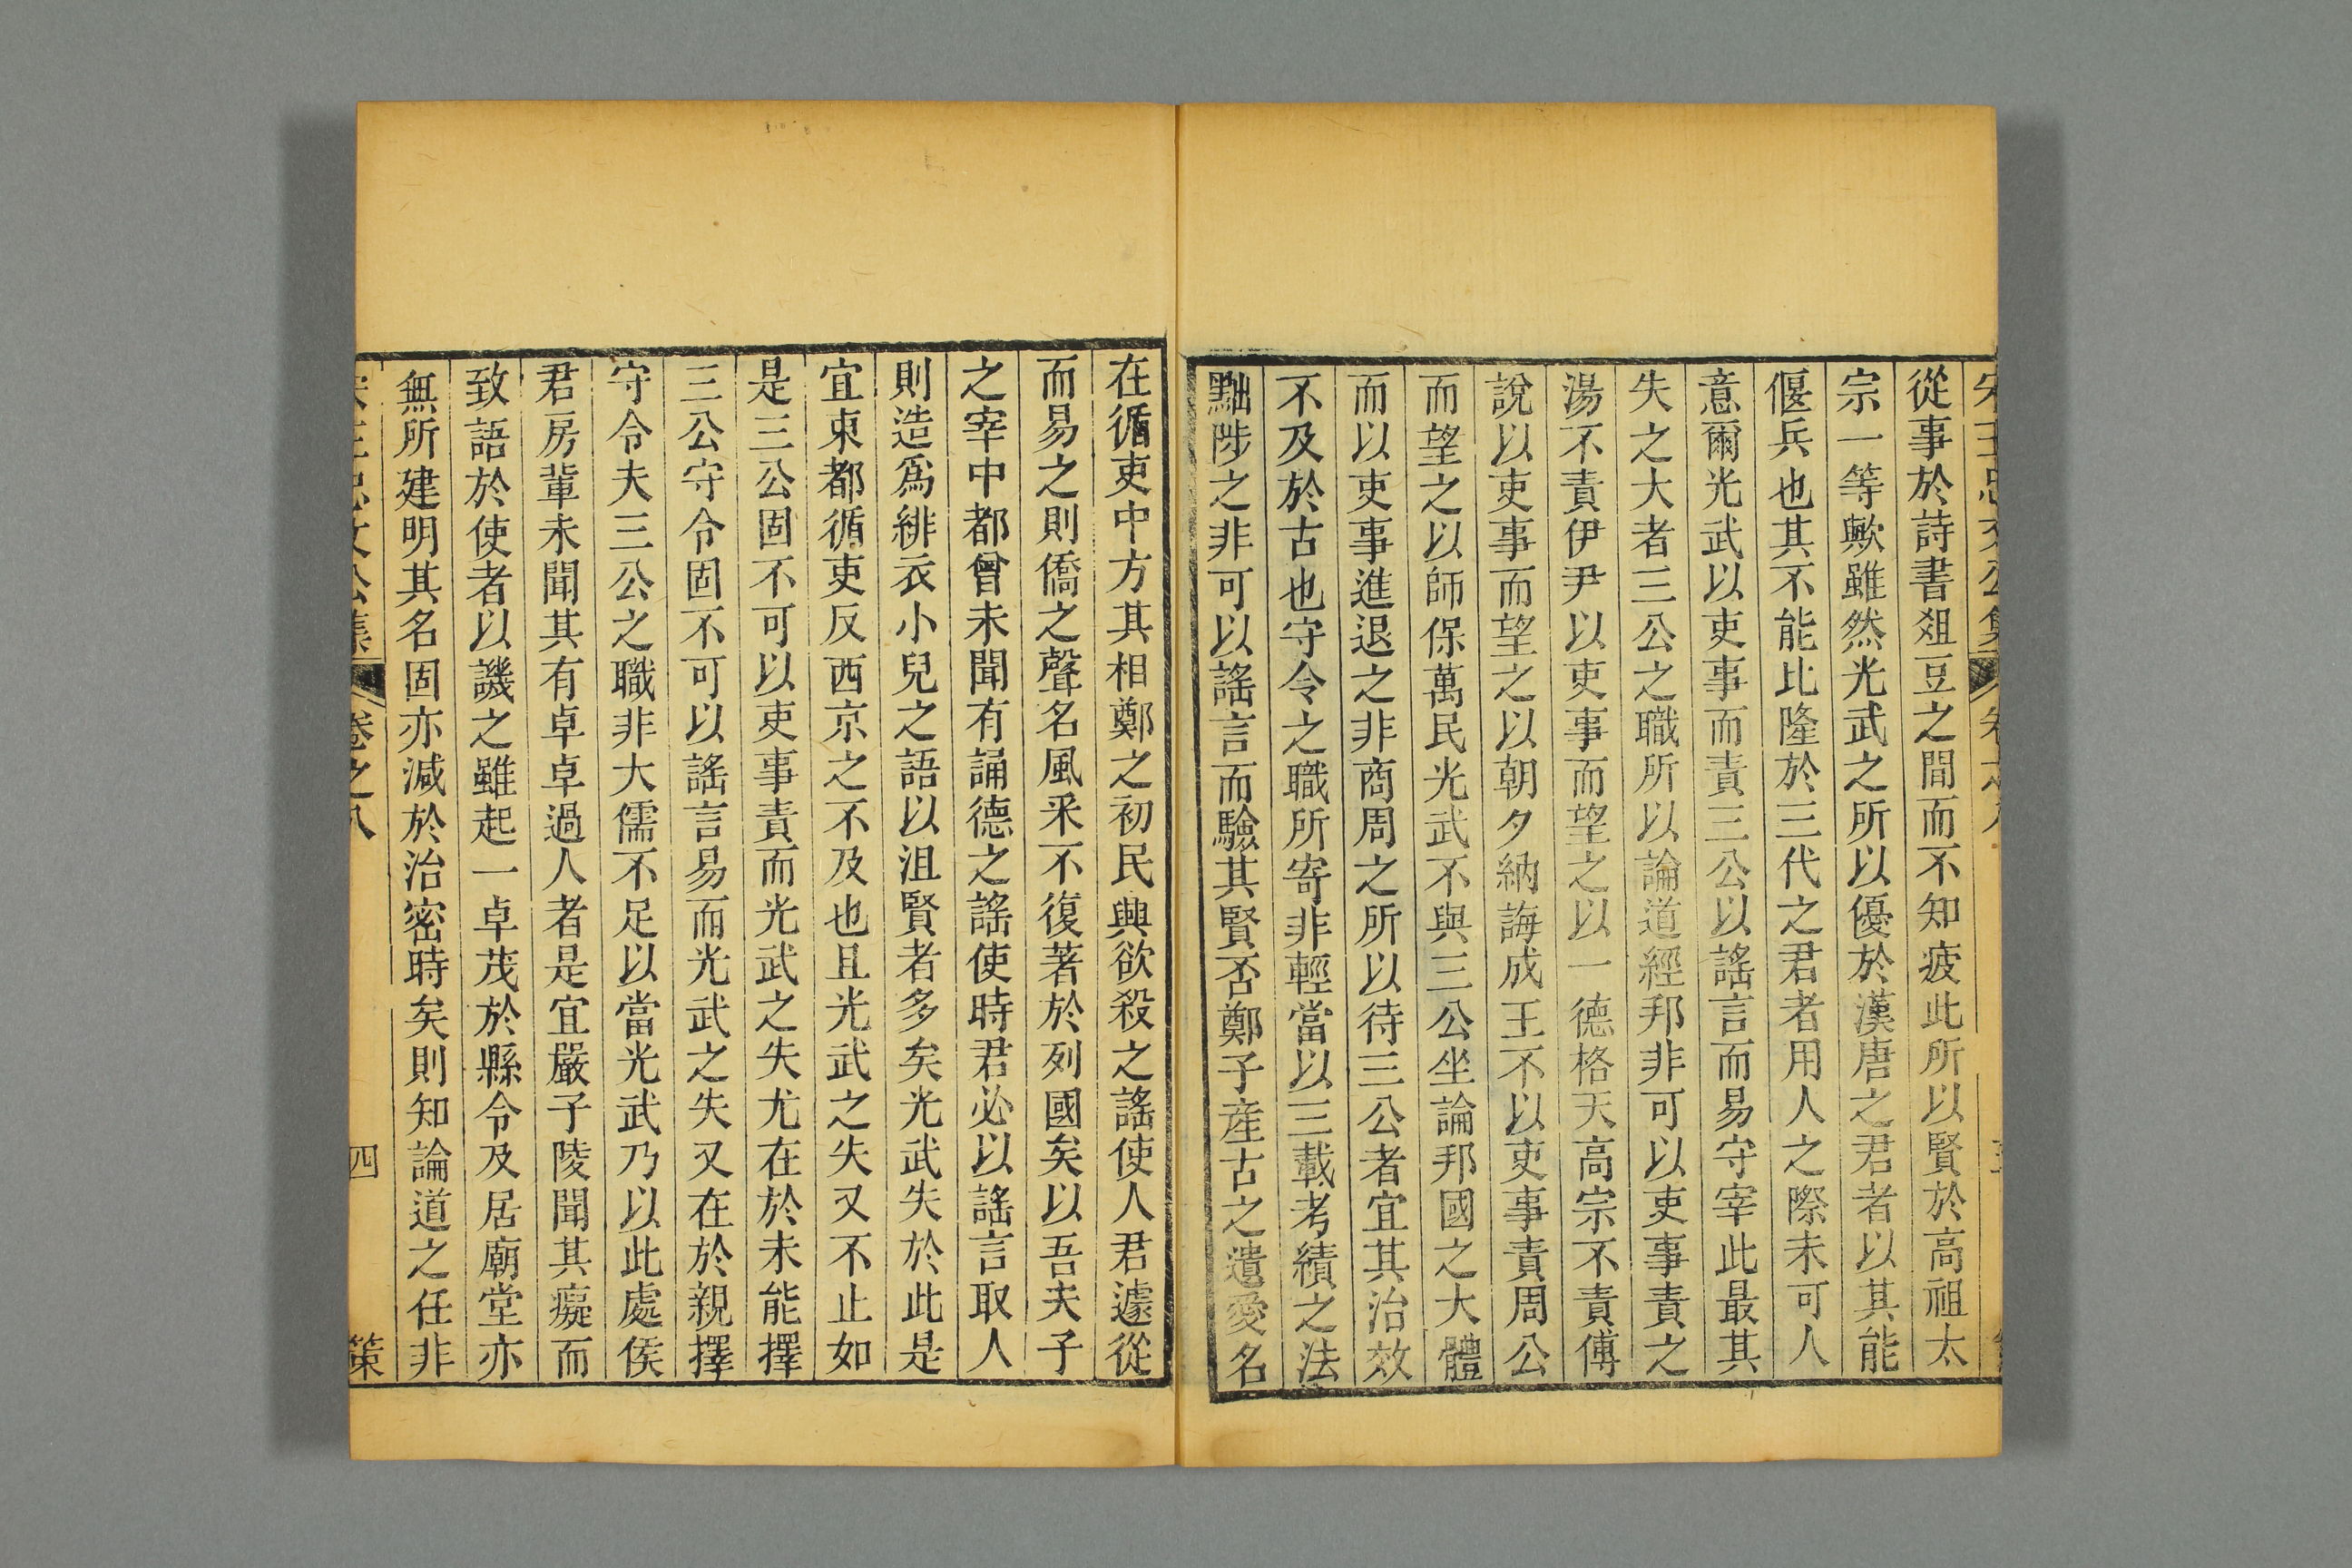 宋王忠文公集
從事於詩書爼豆之間而不知疲此所以賢於高祖太
宗一等歟雖然光武之所以優於漢唐之君者以其能
偃兵也其不能比隆於三代之君者用人之際未可人
意爾光武以吏事而責三公以謠言而易守宰此最其
失之大者三公之職所以論道經邦非可以吏事責之
湯不責伊尹以吏事而望之以一德格天高宗不責傅
說以吏事而望之以朝夕納誨成王不以吏事責周公
而望之以師保萬民光武不與三公坐論邦國之大體
而以吏事進退之非商周之所以待三公者宜其治效
不及於古也守令之職所寄非輕當以三載考績之法
黜陟之非可以謠言而驗其賢否鄭子産古之遺愛名
在循吏中方其相鄭之初民興欲殺之謠使人君遽從
而易之則僑之聲名風采不復著於列國矣以吾夫子
之宰中都曾未聞有誦德之謠使時君必以謠言取人
則造爲緋衣小兒之語以沮賢者多矣光武失於此是
宜東都循吏反西京之不及也且光武之失又不止如
是三公固不可以吏事責而光武之失尤在於未能擇
三公守令固不可以謠言易而光武之失又在於親擇
守令夫三公之職非大儒不足以當光武乃以此處侯
君房輩未聞其有卓卓過人者是宜嚴子陵聞其癡而
致語於使者以譏之雖起一卓茂於縣令及居廟堂亦
無所建明其名固亦減於治密時矣則知論道之任非
宋王忠文公集 卷之八 四 策